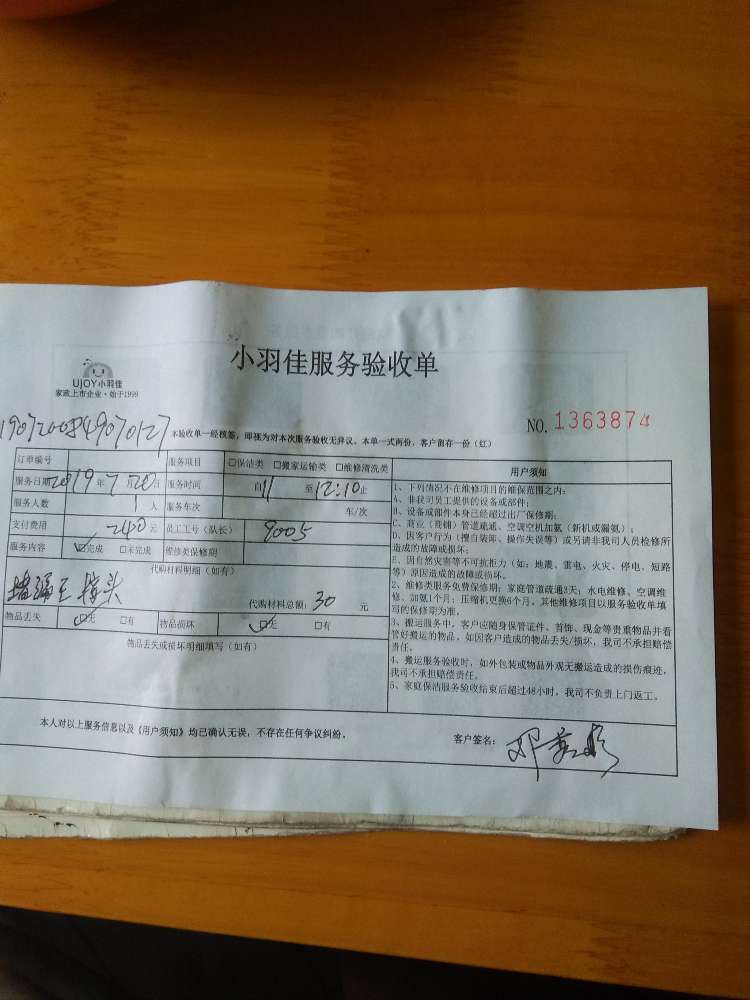 小羽佳服务验收单
UJOY小羽佳
家政上市企业·始于1999
NO. 1363874
本验收单一经核签，即视为对本次服务验收无异议。本单一式两份，客户留存一份（红）
订单编号 服务项目 □保洁类 □搬家运输类 □维修清洗类 用户须知
服务日期2019年7月20日 服务时间 自11至12:10止
服务人数 1人 服务车次 车/次
支付费用 240元 员工工号（队长） 9005
服务内容 ☑完成 □未完成 维修类保修期
代购材料明细（如有）
接头 代购材料总额：30 元
物品丢失 ☑无 □有 物品损坏 ☑无 □有
物品丢失或损坏明细填写（如有）
1、下列情况不在维修项目的维保范围之内：
A、非我司员工提供的设备或部件；
B、设备或部件本身已经超过出厂保修期；
C、商业（商铺）管道疏通、空调空机加氨（新机或漏氨）；
D、因客户行为（擅自装卸、操作失误等）或另请非我司人员检修所
造成的故障或损坏；
E、因自然灾害等不可抗拒力（如：地震、雷电、火灾、停电、短路
等）原因造成的故障或损坏。
2、维修类服务免费保修期：家庭管道疏通3天；水电维修、空调维
修、加氨1个月；压缩机更换6个月。其他维修项目以服务验收单填
写的保修期为准。
3、搬运服务中，客户应随身保管证件、首饰、现金等贵重物品并看
管好搬运的物品。如因客户造成的物品丢失/损坏，我司不承担赔偿
责任。
4、搬运服务验收时，如外包装或物品外观无搬运造成的损伤痕迹，
我司不承担赔偿责任。
5、家庭保洁服务验收结束后超过48小时，我司不负责上门返工。
本人对以上服务信息以及《用户须知》均已确认无误，不存在任何争议纠纷。 客户签名：